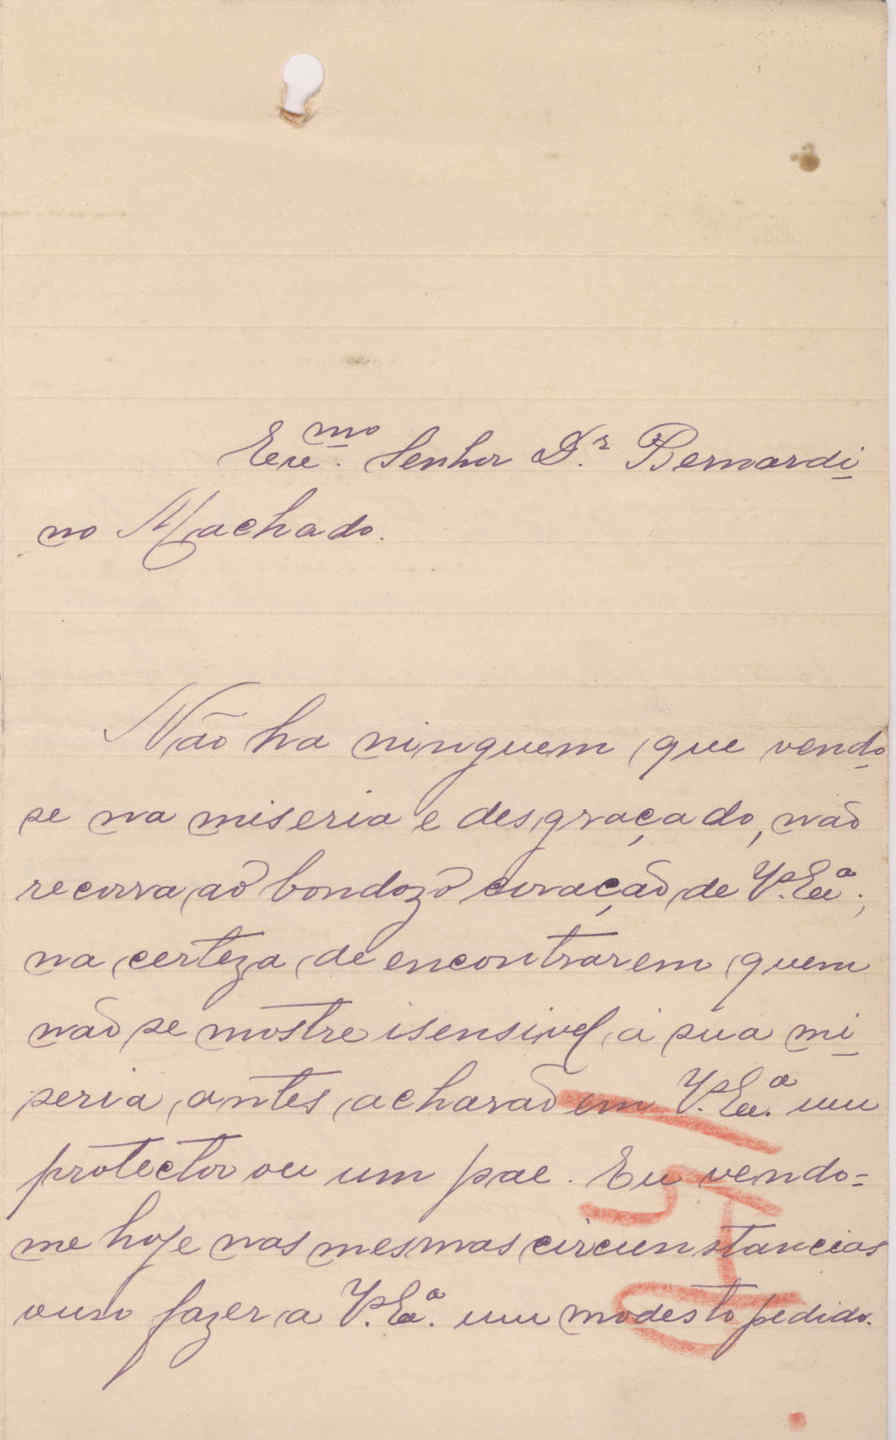 Exc.mo Senhor D.r Bernardi-
no Machado.
Não ha ninguem, que vendo-
se na miseria e desgraçado, não
recorra, ao bondozo coração de V. Ex.a;
na certeza de encontrarem quem
não se mostre isensivel, á sua mi-
seria, antes, acharão em V. Ex.a um
protector ou um pae. Eu vendo-
me hoje nas mesmas circunstancias
ouso fazer, a V. Ex.a um modesto pedido.